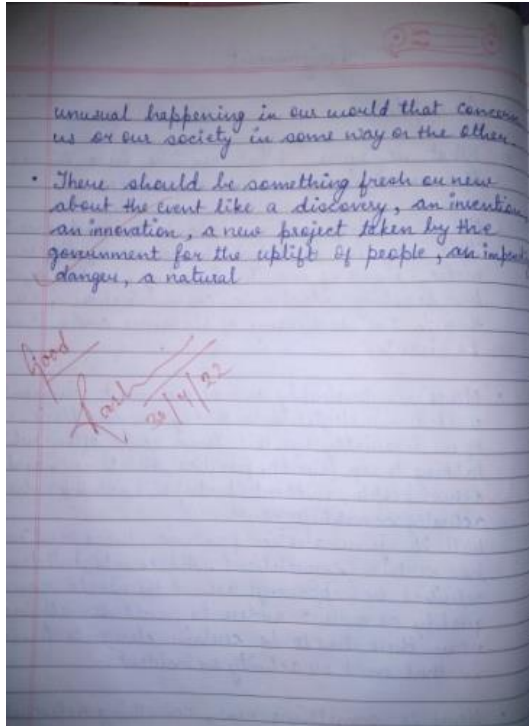 unusual happening in our world that concern
us or our society in some way or the other.
• There should be something fresh or new
about the event like a discovery, an invention
an innovation, a new project taken by the
government for the uplift of people, an impen
danger, a natural
Good
30/4/22